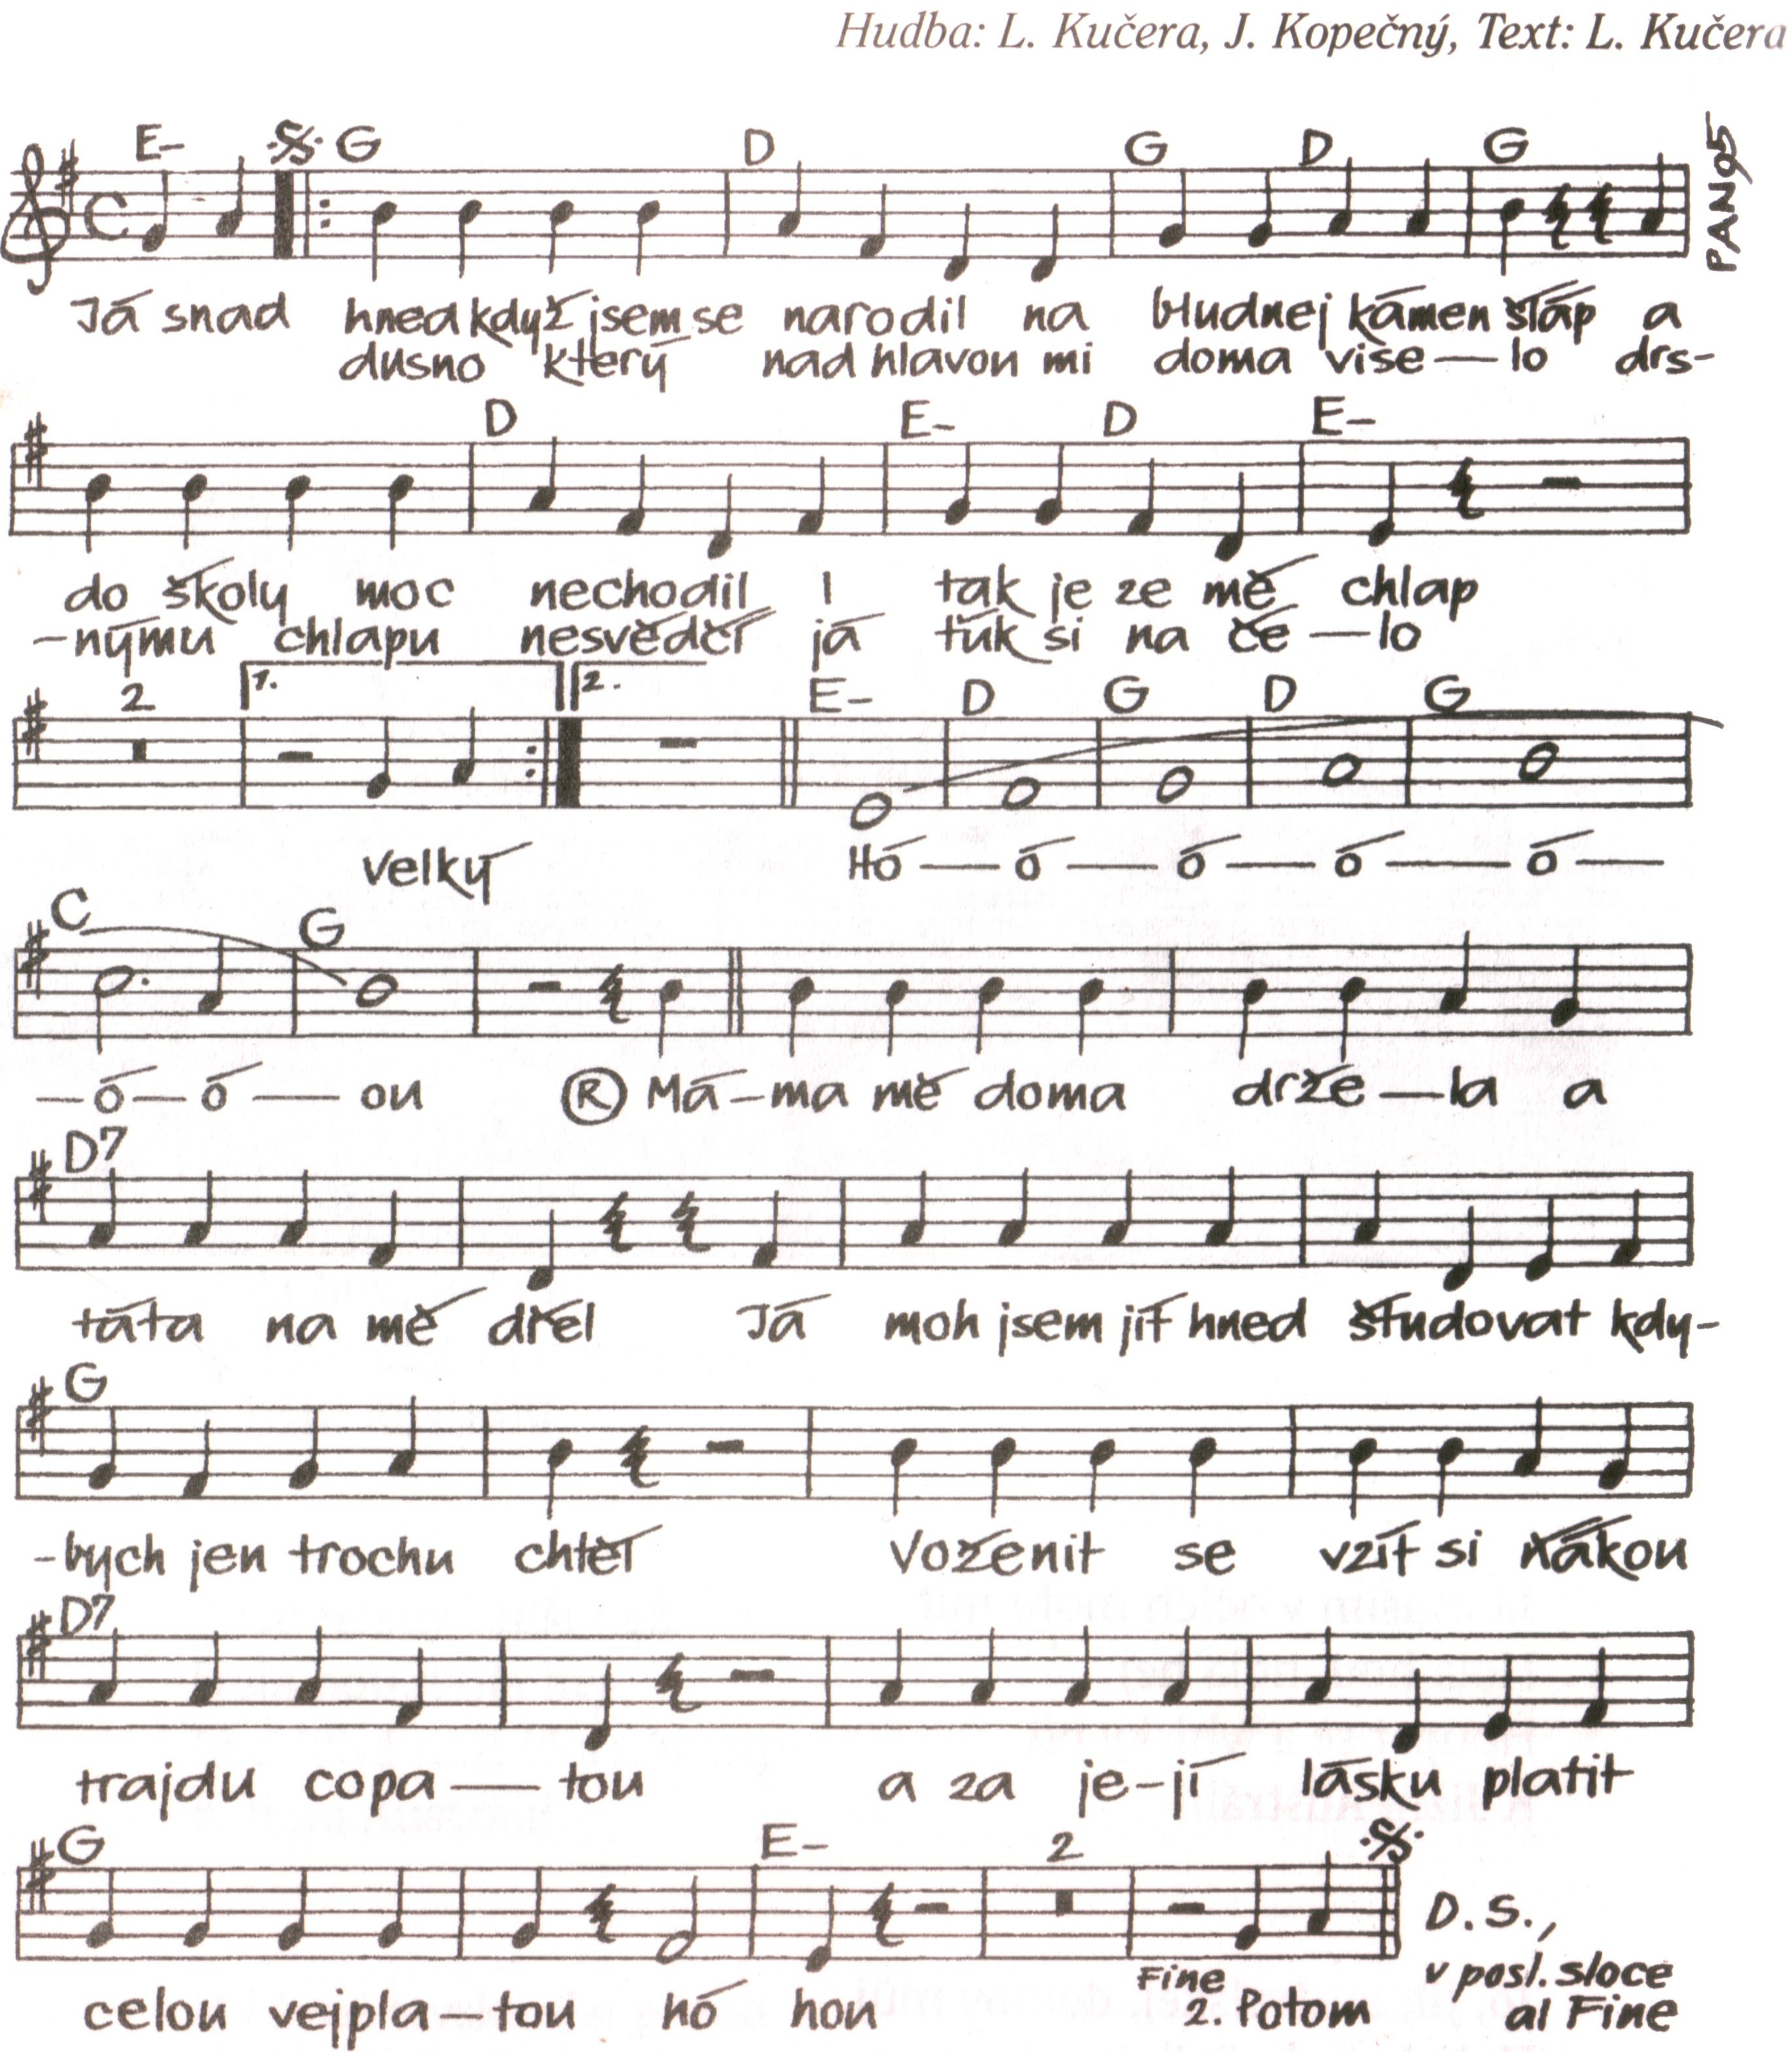 Hudba: L. Kučera, J. Kopečný, Text: L. Kučera
E- G D G D G
PAN95
Já snad hned když jsem se narodil na bludnej kámen šláp a
dusno který nad hlavou mi doma vise—lo drs-
D E- D E-
do školy moc nechodil I tak je ze mě chlap
-nýmu chlapu nesvědčí já ťuk si na če—lo
2 1. 2. E- D G D G
velký Hó—ó—ó—ó—ó—
C G
—ó—ó—ou Ⓡ Má-ma mě doma drže—la a
D7
táta na mě dřel Já moh jsem jít hned študovat kdy-
G
-bych jen trochu chtěl Voženit se vzít si ňákou
D7
trajdu copa—tou a za je-jí lásku platit
G E- 2
D.S.,
celou vejpla—tou hó hou
Fine
2. Potom
v posl. sloce
al Fine